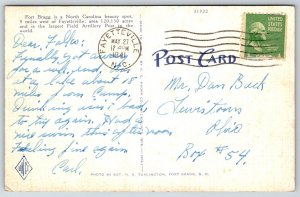 Fort Bragg is a North Carolina beauty spot,
9 miles west of Fayetteville; area 120,150 acres
and is the largest Field Artillery Post in the
world.
FAYETTEVILLE
MAY 21
1941
N.C.
UNITED STATES
POSTAGE
POST CARD
Dear Folks:
Finally got
for a
Fay is about 15
miles from Camp.
Drinking isn't bad
to try again. Had a
nice swim this afternoon
Feeling fine again
Carl.
Mr. Dan Back
Lewistown
Ohio
Box #54.
PHOTO BY SGT. H. S. TURLINGTON, FORT BRAGG, N. C.